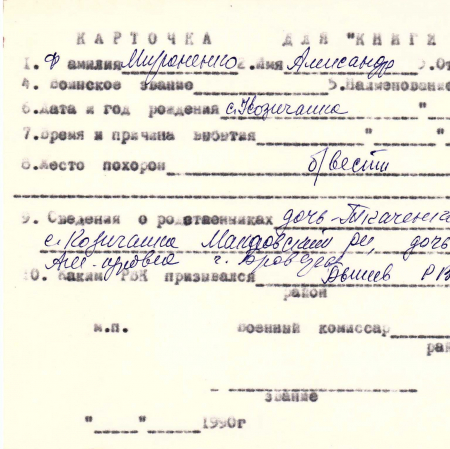 КАРТОЧКА ДЛЯ "КНИГИ
1. Фамилия Мироненко 2. Имя Александр 3. От
4. Воинское звание 5. Наименование
6. Дата и год рождения с. Козичанка "
7. Время и причина выбытия " "
8. Место похорон б/вести
9. Сведения о родственниках дочь-Ткаченко
с. Козичанка дочь
г.
10. Каким РВК призывался РВ
район
м.п. Военный комиссар
рай
звание
" " 1990г